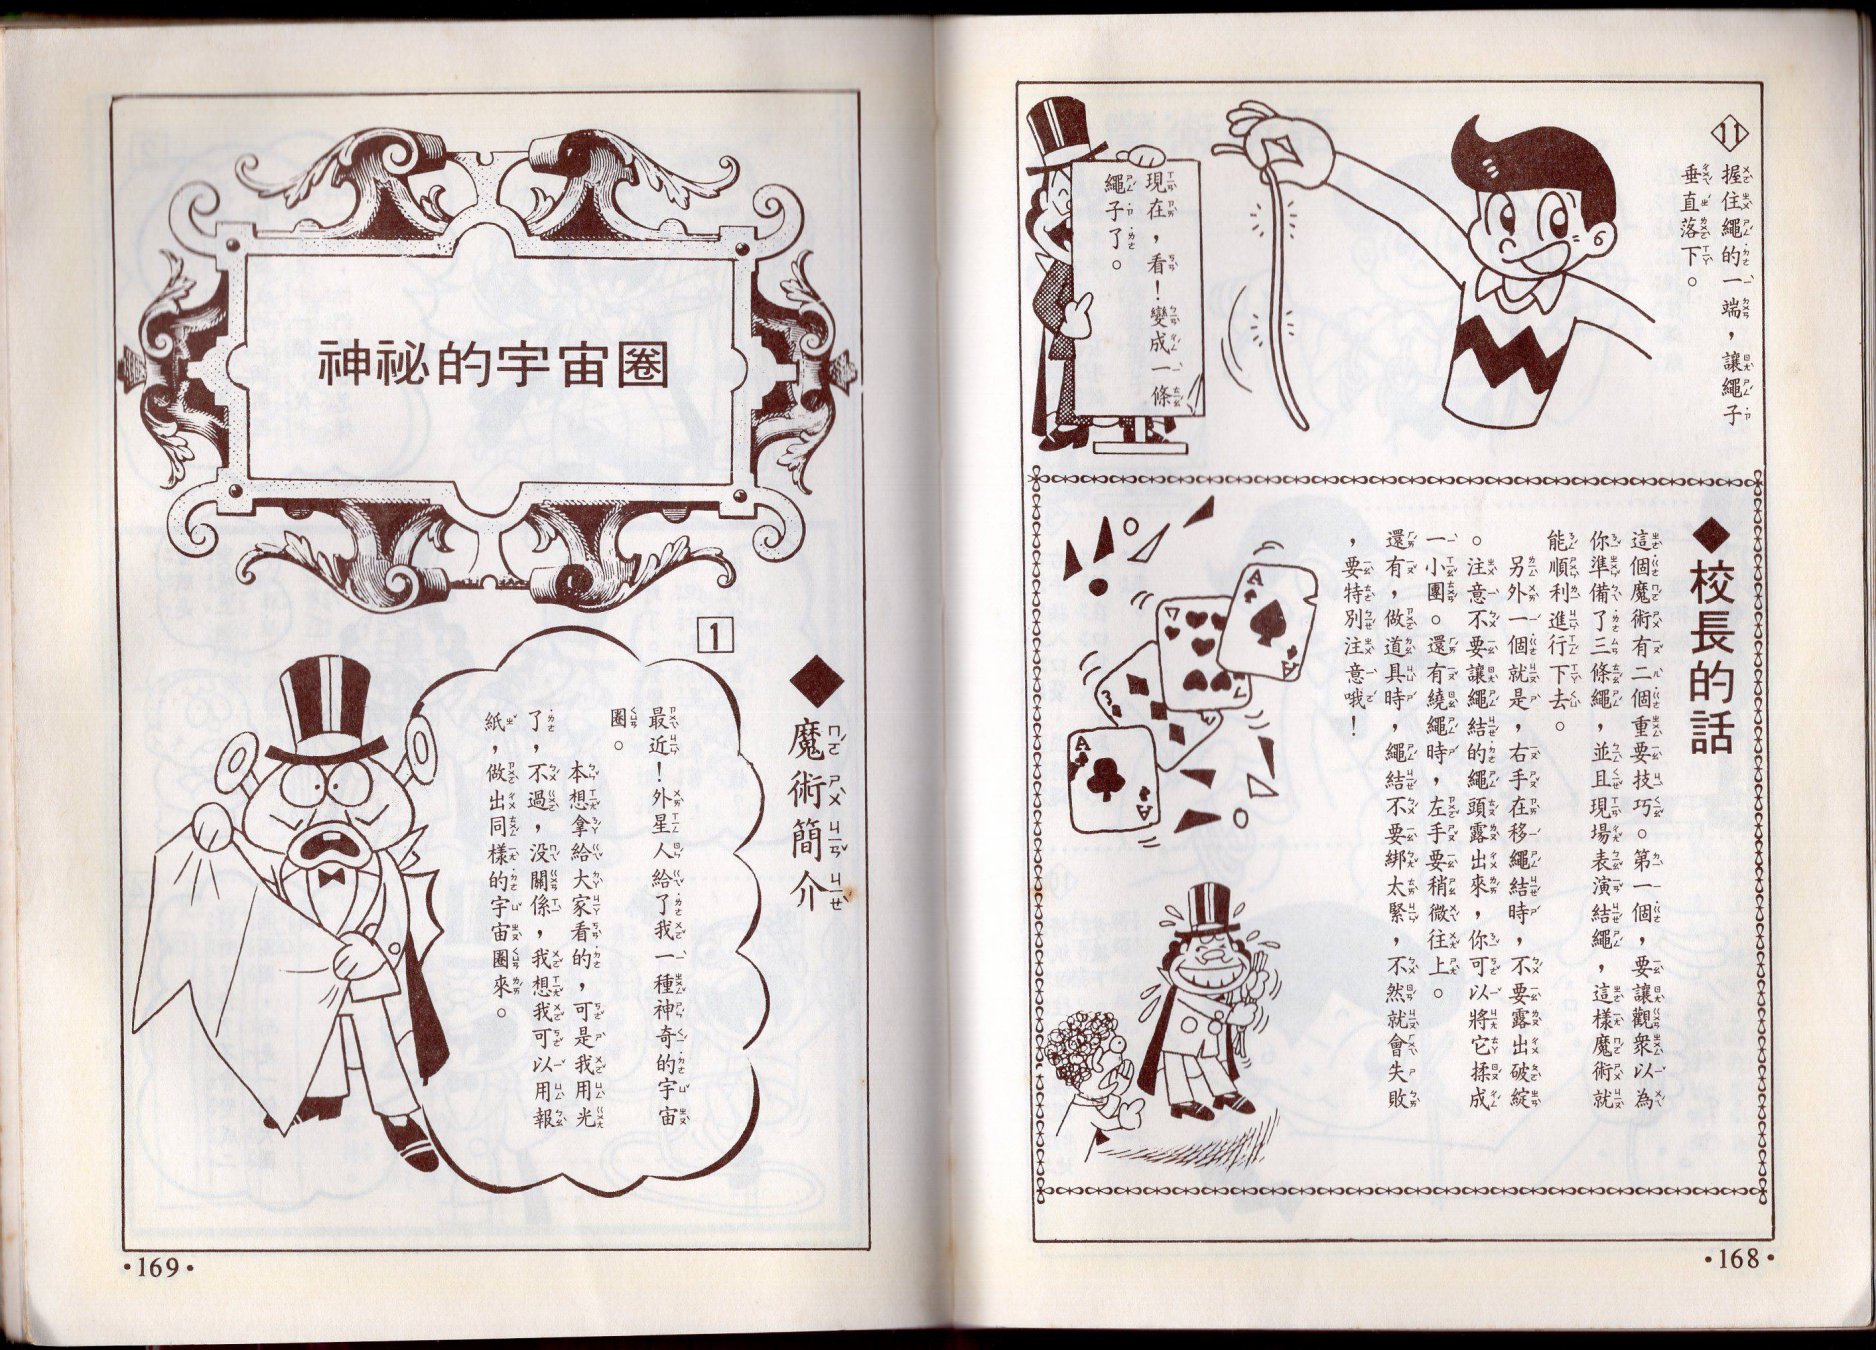 11
握住繩的一端，讓繩子
垂直落下。
現在，看！變成一條
繩子了。
◆校長的話
這個魔術有二個重要技巧。第一個，要讓觀眾以為
你準備了三條繩，並且現場表演結繩，這樣魔術就
能順利進行下去。
另外一個就是，右手在移繩結時，不要露出破綻
。注意不要讓繩結的繩頭露出來，你可以將它揉成
一小團。還有繞繩時，左手要稍微往上。
還有，做道具時，繩結不要綁太緊，不然就會失敗
，要特別注意哦！
A
A
7
7
3
A
A
•168•
神祕的宇宙圈
◆魔術簡介
1
最近！外星人給了我一種神奇的宇宙
圈。
本想拿給大家看的，可是我用光
了，不過，沒關係，我想我可以用報
紙，做出同樣的宇宙圈來。
•169•